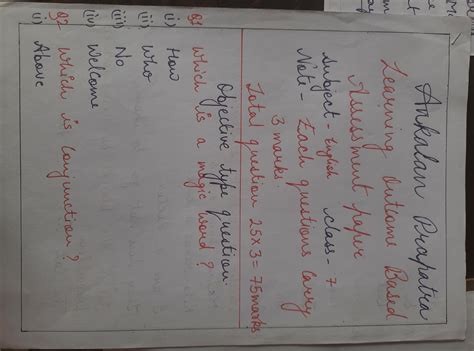 Ankalan Prapatra
Learning Outcome Based
Assessment paper
Subject - English class - 7
Note - Each questions carry
3 marks.
Total question 25x3=75 marks
Objective type question.
Q1 Which is a magic word?
(i) How
(ii) Who
(iii) No
(iv) Welcome
Q2 Which is conjunction?
(i) Above